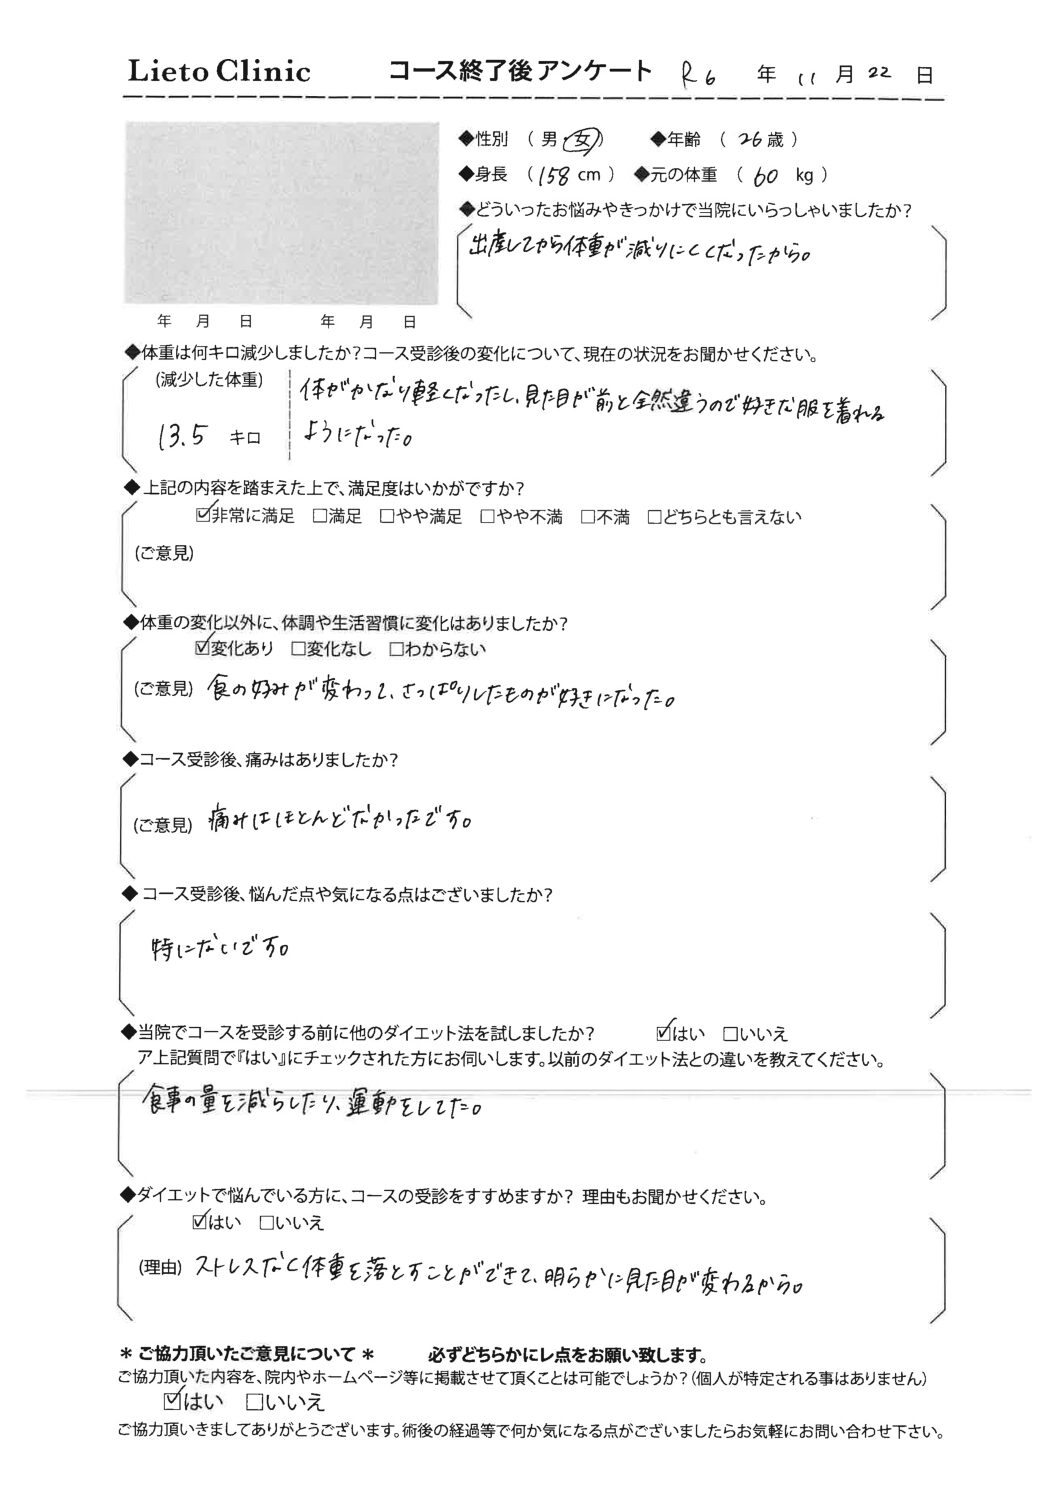 Lieto Clinic コース終了後アンケート R6 年 11 月 22 日
◆性別 （ 男・女） ◆年齢 （ 26 歳 ）
◆身長 （ 158 cm ） ◆元の体重 （ 60 kg ）
◆どういったお悩みやきっかけで当院にいらっしゃいましたか？
出産してから体重が減りにくくなったから。
年 月 日 年 月 日
◆体重は何キロ減少しましたか？コース受診後の変化について、現在の状況をお聞かせください。
(減少した体重)
体がかなり軽くなったし、見た目が前と全然違うので好きな服を着れる
13.5 キロ
ようになった。
◆ 上記の内容を踏まえた上で、満足度はいかがですか？
☑非常に満足 □満足 □やや満足 □やや不満 □不満 □どちらとも言えない
(ご意見)
◆体重の変化以外に、体調や生活習慣に変化はありましたか？
☑変化あり □変化なし □わからない
(ご意見) 食の好みが変わって、さっぱりしたものが好きになった。
◆コース受診後、痛みはありましたか？
(ご意見) 痛みはほとんどなかったです。
◆ コース受診後、悩んだ点や気になる点はございましたか？
特にないです。
◆当院でコースを受診する前に他のダイエット法を試しましたか？ ☑はい □いいえ
ア上記質問で『はい』にチェックされた方にお伺いします。以前のダイエット法との違いを教えてください。
食事の量を減らしたり、運動をしてた。
◆ダイエットで悩んでいる方に、コースの受診をすすめますか？ 理由もお聞かせください。
☑はい □いいえ
(理由) ストレスなく体重を落とすことができて、明らかに見た目が変わるから。
＊ ご協力頂いたご意見について ＊ 必ずどちらかにレ点をお願い致します。
ご協力頂いた内容を、院内やホームページ等に掲載させて頂くことは可能でしょうか？（個人が特定される事はありません）
☑はい □いいえ
ご協力頂いきましてありがとうございます。術後の経過等で何か気になる点がございましたらお気軽にお問い合わせ下さい。